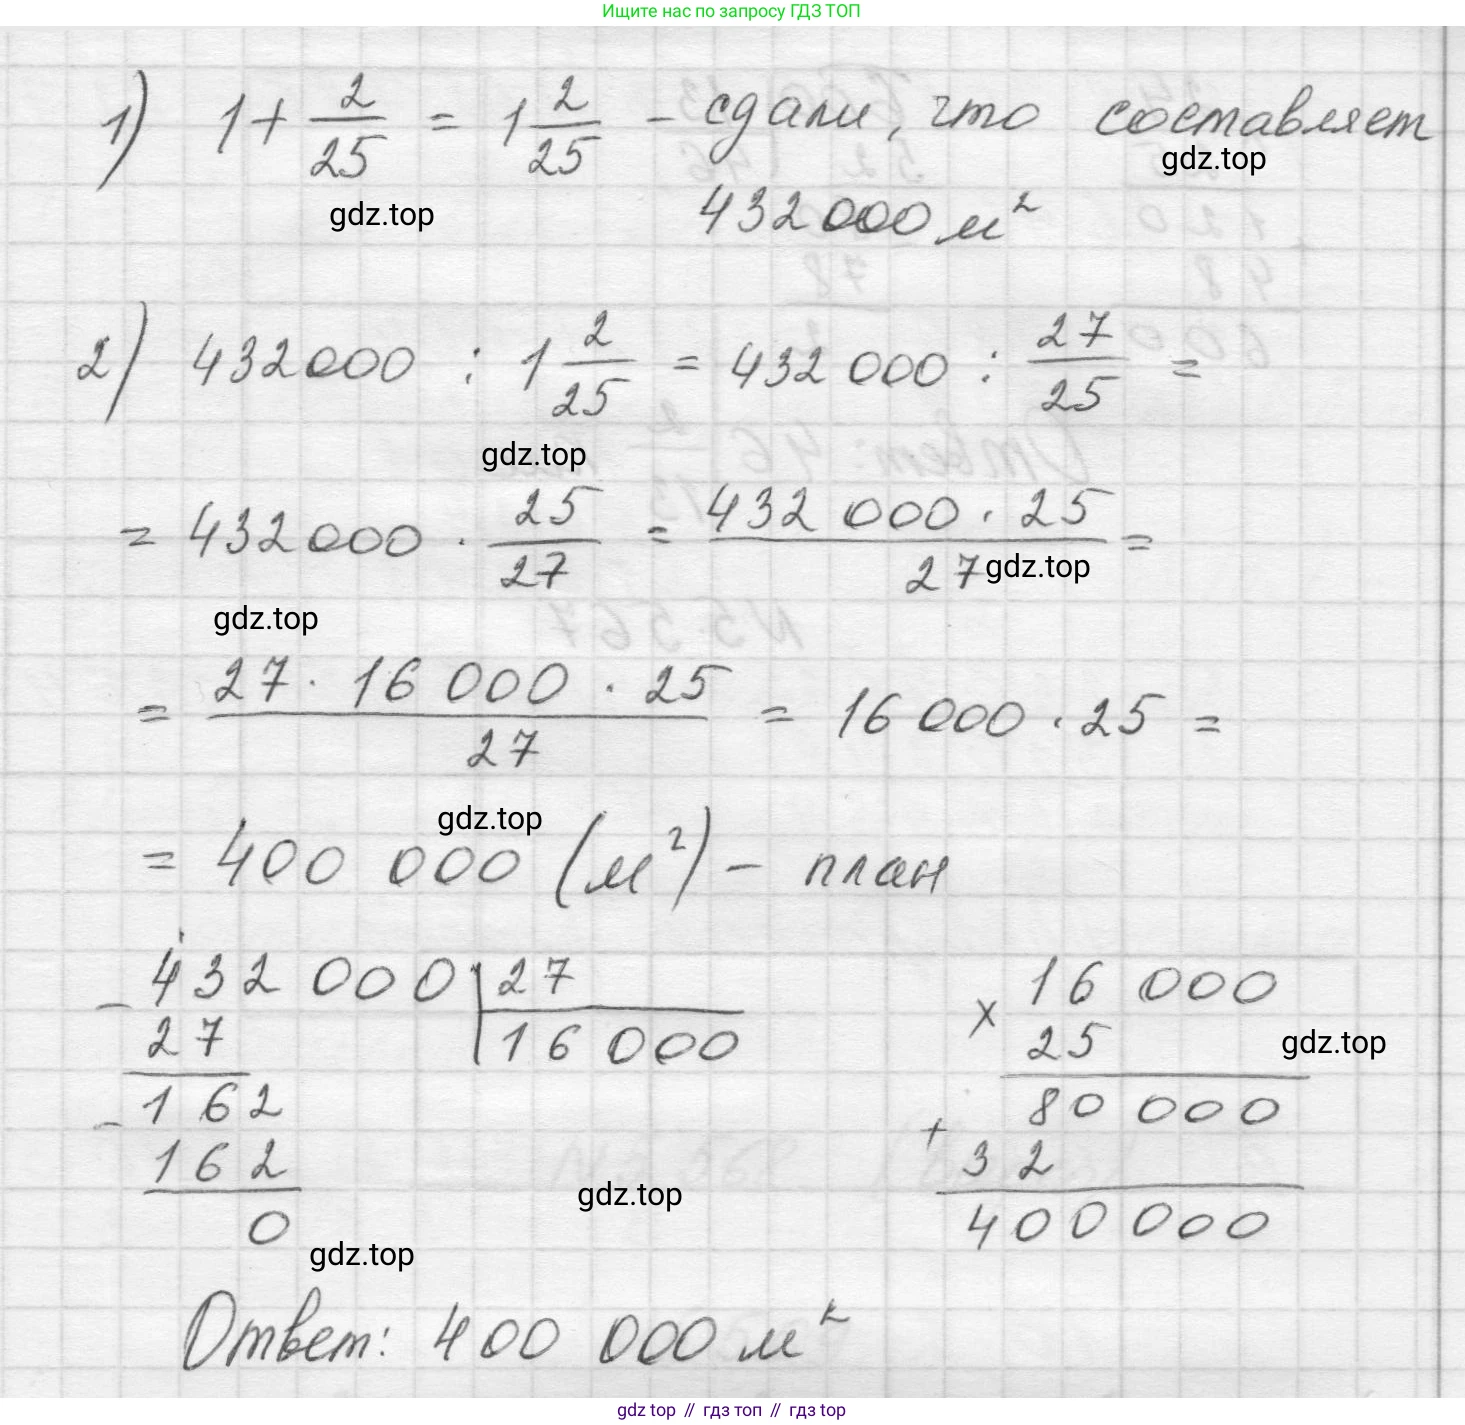 Ищите нас по запросу ГДЗ ТОП
1) 1 + 2/25 = 1 2/25 - сдали, что составляет
gdz.top
gdz.top
432 000 м²
2) 432000 : 1 2/25 = 432 000 : 27/25 =
gdz.top
= 432000 · 25/27 = 432 000 · 25/27 =
gdz.top
gdz.top
= 27 · 16 000 · 25/27 = 16 000 · 25 =
gdz.top
= 400 000 (м²) - план
- 432 000 | 27
27 | 16 000
- 162
162
0
× 16 000
25
gdz.top
+ 80 000
32
400 000
gdz.top
gdz.top
Ответ: 400 000 м²
gdz top // гдз топ // gdz top